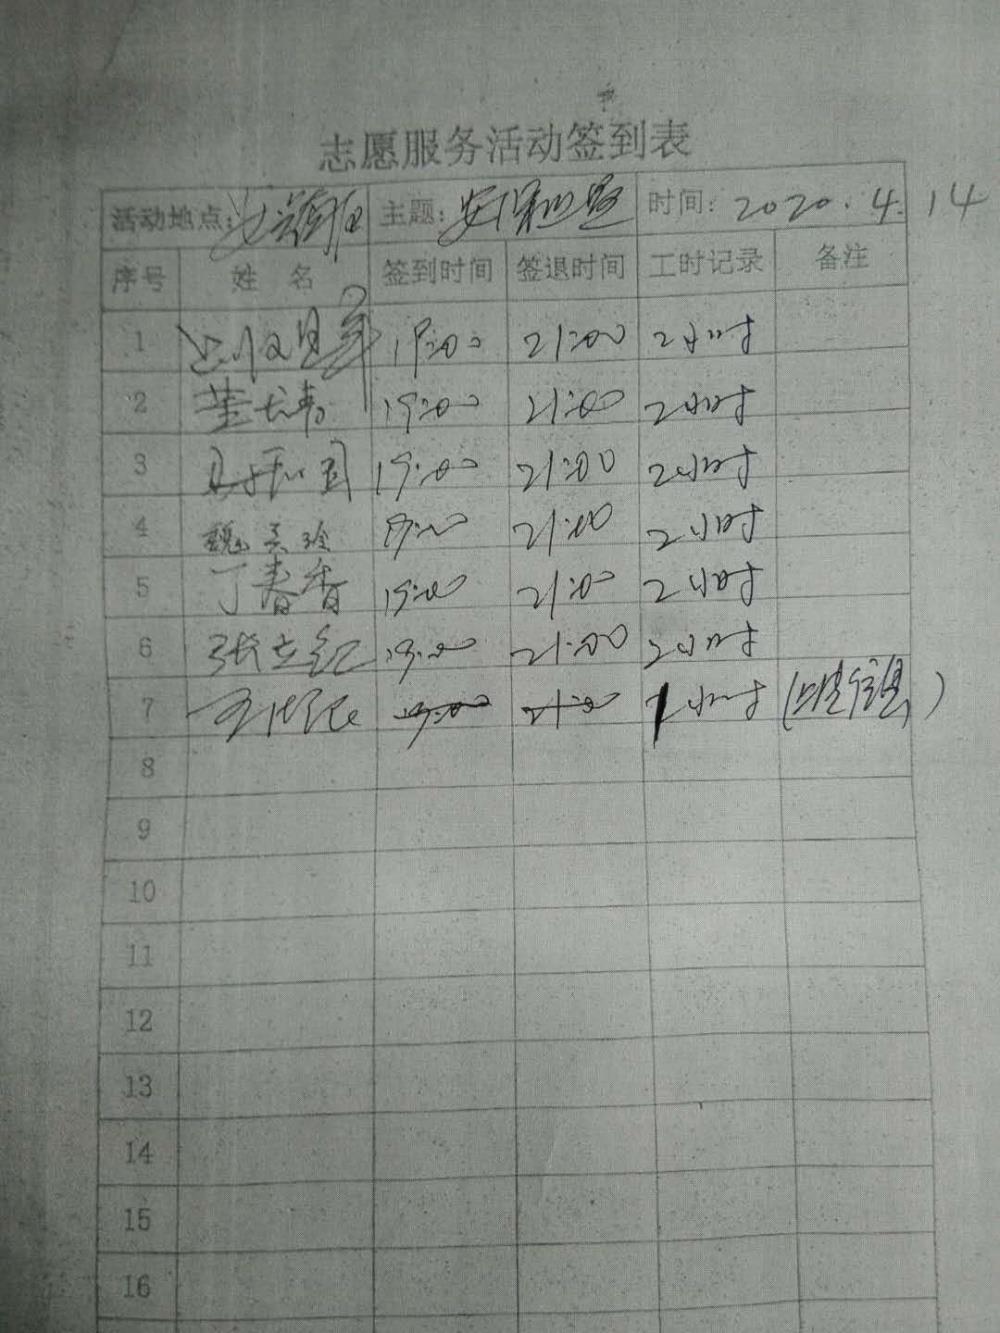 志愿服务活动签到表
活动地点: 主题: 时间: 2020.4.14
序号 姓 名 签到时间 签退时间 工时记录 备注
1 19:00 21:00 2小时
2 19:00 21:00 2小时
3 19:00 21:00 2小时
4 魏 19:00 21:00 2小时
5 丁春香 19:00 21:00 2小时
6 张立红 19:00 21:00 2小时
7 19:00 21:00 1小时
8
9
10
11
12
13
14
15
16